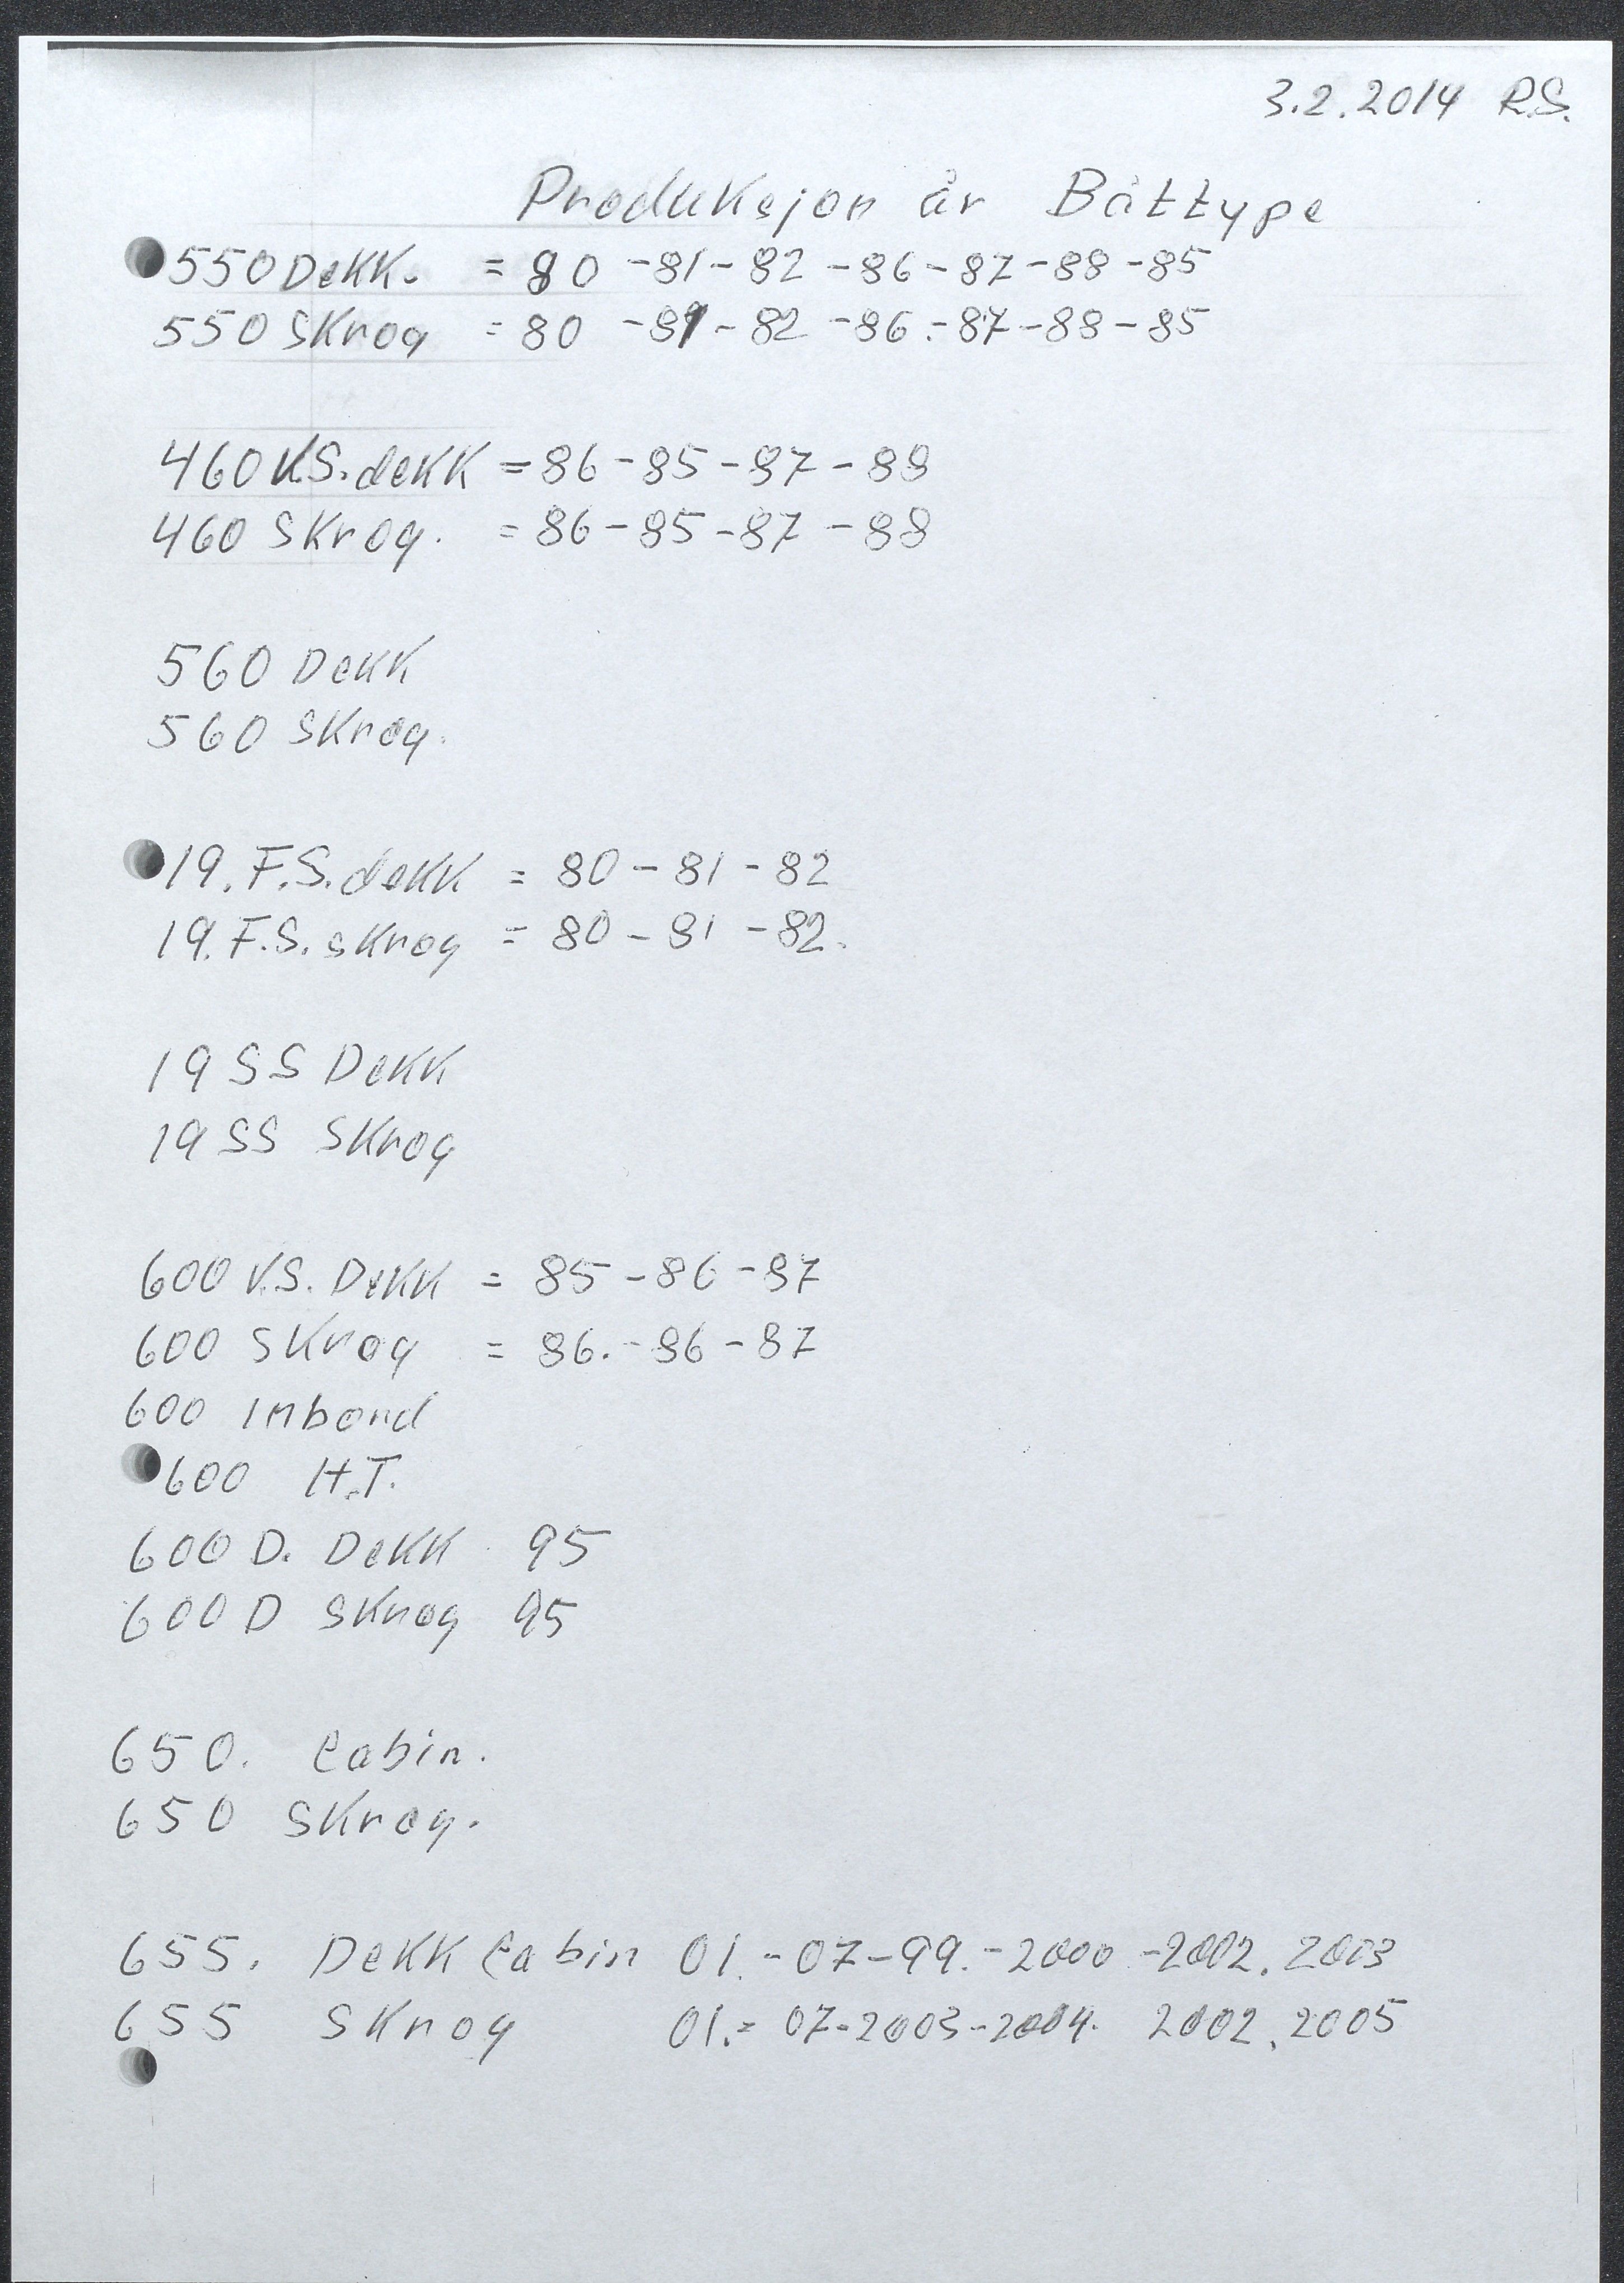 3.2.2014 R.S.
Produksjon år Båttype
550 Dekk. = 80 -81- 82 -86- 87-88 -85
550 Skrog = 80 -81- 82 -86.-87-88-85
460 V.S. dekk = 86-85-87-88
460 Skrog. = 86-85-87-88
560 Dekk
560 Skrog.
19. F.S. dekk = 80-81-82
19. F.S. skrog = 80-81-82.
19 SS Dekk
19 SS Skrog
600 V.S. Dekk = 85-86-87
600 Skrog = 86.-86-87
600 Inbord
600 H.T.
600 D. Dekk 95
600 D Skrog 95
650. Cabin.
650 Skrog.
655. Dekk Cabin 01.-07-99.-2000-2002. 2003
655 Skrog 01.- 07-2003-2004. 2002. 2005